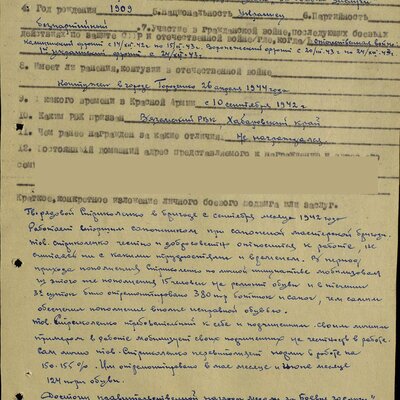 4. Год рождения 1909 5. Национальность украинец 6. Партийность
беспартийный 7. Участие в гражданской войне, последующих боевых
действиях по защите СССР и отечественной войне /где, когда/ Отечественная война:
Калининский фронт с Воронежский фронт с
1й Украинский фронт с
8. Имеет ли ранения, контузии в отечественной войне
Контужен в городе 26 апреля 1944 года
9. С какого времени в Красной Армии с 10 сентября 1942 г.
10. Каким РВК призван Вяземский РВК, Хабаровский край
11. Чем ранее награжден за какие отличия Не награждался
12. Постоянный домашний адрес представляемого к награждению и
Краткое, конкретное изложение личного боевого подвига или заслуг.
Гв. рядовой в бригаде с сентября месяца 1942 года
Работает сапожником при сапожной мастерской бригады.
тов. честно и добросовестно относится к работе, не
считаясь ни с какими трудностями и временем. В период
прихода пополнения по личной инициативе мобилизовал
из этого же пополнения 15 человек на ремонт обуви и в течении
суток было отремонтировано 380 пар ботинок и сапог, тем самым
обеспечил пополнение вполне исправной обувью.
тов. требовательный к себе и подчиненным. Своим личным
примером в работе мобилизует своих подчиненных не
Сам лично тов. перевыполняет нормы в работе на
150-155 %. Им отремонтировано в мае месяце и июне месяце
124 пары обуви.
Достоин правительственной награды медали "За боевые заслуги"